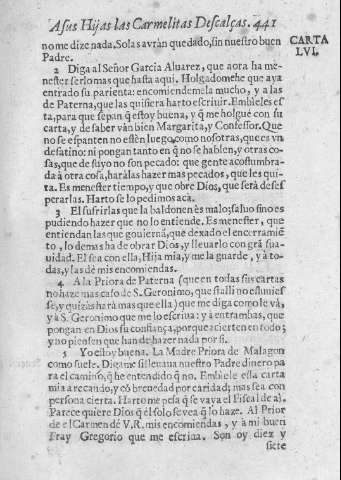 A sus Hijas las Carmelitas Descalças. 441
CARTA
LVI.
no me dize nada. Solas avràn quedado, sin nuestro buen
Padre.
2 Diga al Señor Garcia Aluarez, que aora ha me-
nester serlo mas que hasta aqui. Holgadome he que aya
entrado su parienta: encomiendemela mucho, y a las
de Paterna, que las quisiera harto escriuir. Embieles es-
ta, para que sepan q̃ estoy buena, y q̃ me holguè con su
carta, y de saber vàn bien Margarita, y Confessor. Que
no se espanten no estèn luego, como nosotras, que es vn
desatino: ni pongan tanto en q̃ no se hablen, y otras co-
sas, que de suyo no son pecado: que gente acostumbra-
da à otra cosa, haràlas hazer mas pecados, que les qui-
ta. Es menester tiempo, y que obre Dios, que serà deses
perarlas. Harto se lo pedimos acà.
3 El sufrirlas que la baldonen ès malo; saluo sino es
pudiendo hazer que no lo entiende. Es menester, que
entiendan las que gouiernã, que dexado el encerramiẽ-
to, lo demas ha de obrar Dios, y lleuarlo con grã sua-
uidad. El sea con ella, Hija mia, y me la guarde, y à to-
das, y las dè mis encomiendas.
4 A la Priora de Paterna (que en todas sus cartas
no haze mas caso de S. Geronimo, que si alli no estuuies
se, y quizàs harà mas que ella) que me diga como le và,
y à S. Geronimo que me lo escriua: y à entrambas, que
pongan en Dios su confiança, porque acierten en todo;
y no piensen que han de hazer nada por si.
5 Yo estoy buena. La Madre Priora de Malagon
como suele. Digame si lleuaua nuestro Padre dinero pa
ra el camino, q̃ he entendido q̃ no. Embiele essa carta
mia à recaudo, y cõ breuedad por caridad; mas sea con
persona cierta. Harto me pesa q̃ se vaya el Fiscal de aì.
Parece quiere Dios q̃ el solo se vea q̃ lo haze. Al Prior
de el Carmen dè V.R. mis encomiendas, y à mi buen
Fray Gregorio que me escriua. Son oy diez y
siete